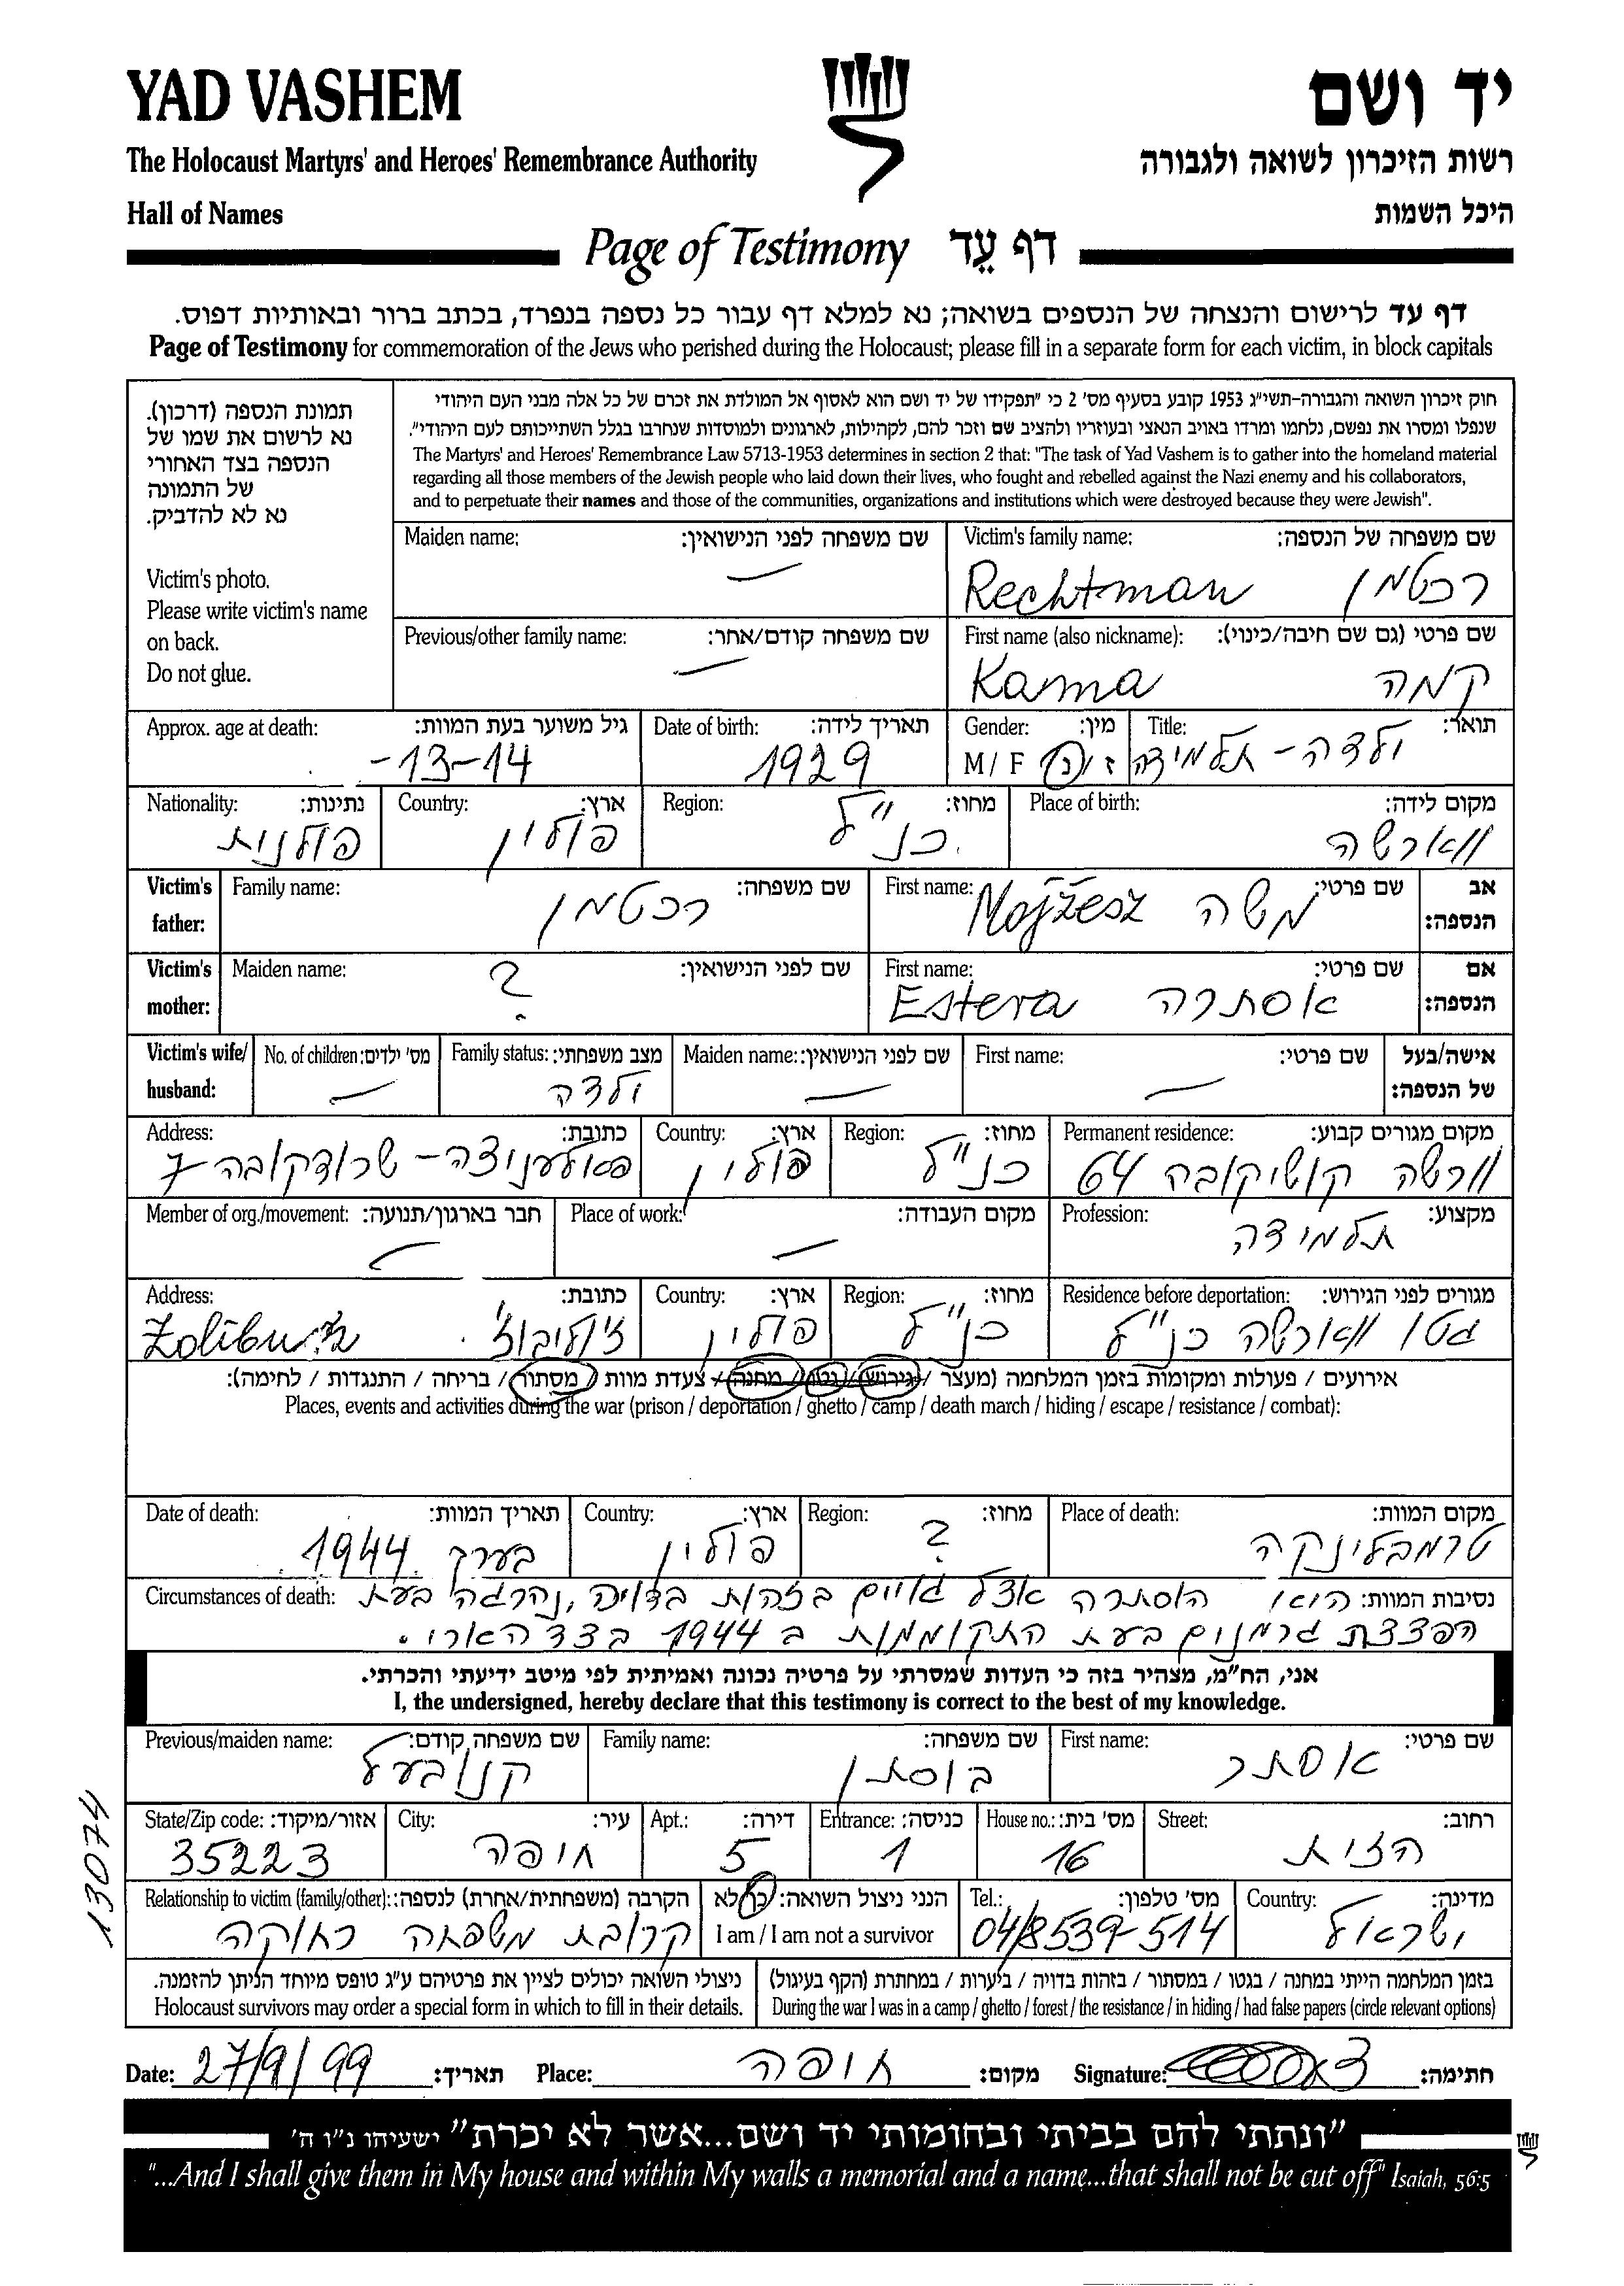 YAD VASHEM
יד ושם
The Holocaust Martyrs' and Heroes' Remembrance Authority
רשות הזיכרון לשואה ולגבורה
Hall of Names
היכל השמות
Page of Testimony דף עֵד
דף עד לרישום והנצחה של הנספים בשואה; נא למלא דף עבור כל נספה בנפרד, בכתב ברור ובאותיות דפוס.
Page of Testimony for commemoration of the Jews who perished during the Holocaust; please fill in a separate form for each victim, in block capitals
תמונת הנספה (דרכון).
נא לרשום את שמו של
הנספה בצד האחורי
של התמונה
נא לא להדביק.
Victim's photo.
Please write victim's name
on back.
Do not glue.
חוק זיכרון השואה והגבורה-תשי"ג 1953 קובע בסעיף מס' 2 כי "תפקידו של יד ושם הוא לאסוף אל המולדת את זכרם של כל אלה מבני העם היהודי
שנפלו ומסרו את נפשם, נלחמו ומרדו באויב הנאצי ובעוזריו ולהציב שם וזכר להם, לקהילות, לארגונים ולמוסדות שנחרבו בגלל השתייכותם לעם היהודי".
The Martyrs' and Heroes' Remembrance Law 5713-1953 determines in section 2 that: "The task of Yad Vashem is to gather into the homeland material
regarding all those members of the Jewish people who laid down their lives, who fought and rebelled against the Nazi enemy and his collaborators,
and to perpetuate their names and those of the communities, organizations and institutions which were destroyed because they were Jewish".
Victim's family name: שם משפחה של הנספה:
Rechtman רכטמן
Maiden name: שם משפחה לפני הנישואין:
—
First name (also nickname): שם פרטי (גם שם חיבה/כינוי):
Kama קמה
Previous/other family name: שם משפחה קודם/אחר:
—
Title: תואר:
ילדה - תלמידה
Gender: מין:
M / F ז / נ
Date of birth: תאריך לידה:
1929
Approx. age at death: גיל משוער בעת המוות:
-13-14
Place of birth: מקום לידה:
ווארשה
Region: מחוז:
כנ"ל
Country: ארץ:
פולין
Nationality: נתינות:
פולנית
Victim's father: אב הנספה:
First name: שם פרטי:
Mojżesz משה
Family name: שם משפחה:
רכטמן
Victim's mother: אם הנספה:
First name: שם פרטי:
Estera אסתרה
Maiden name: שם לפני הנישואין:
?
Victim's wife/husband: אישה/בעל של הנספה:
First name: שם פרטי:
—
Maiden name: שם לפני הנישואין:
—
Family status: מצב משפחתי:
ילדה
No. of children: מס' ילדים:
—
Permanent residence: מקום מגורים קבוע:
וורשה קושיקובה 64
Region: מחוז:
כנ"ל
Country: ארץ:
פולין
Address: כתובת:
פאולעניצה - שרודקובה 7
Profession: מקצוע:
תלמידה
Place of work: מקום העבודה:
—
Member of org./movement: חבר בארגון/תנועה:
—
Residence before deportation: מגורים לפני הגירוש:
גטו ווארשה כנ"ל
Region: מחוז:
כנ"ל
Country: ארץ:
פולין
Address: כתובת:
ז'וליבוז'
אירועים / פעולות ומקומות בזמן המלחמה (מעצר / גירוש / גטו / מחנה / צעדת מוות / מסתור / בריחה / התנגדות / לחימה):
Places, events and activities during the war (prison / deportation / ghetto / camp / death march / hiding / escape / resistance / combat):
Place of death: מקום המוות:
טרמבלינקה
Region: מחוז:
?
Country: ארץ:
פולין
Date of death: תאריך המוות:
בערך 1944
Circumstances of death: נסיבות המוות: היא הוסתרה אצל גויים בזהות בדויה, נהרגה בעת
הפצצת גרמנים בעת התקוממות ב 1944 בצד הארי.
אני, הח"מ, מצהיר בזה כי העדות שמסרתי על פרטיה נכונה ואמיתית לפי מיטב ידיעתי והכרתי.
I, the undersigned, hereby declare that this testimony is correct to the best of my knowledge.
First name: שם פרטי:
אסתר
Family name: שם משפחה:
בוסתן
Previous/maiden name: שם משפחה קודם:
קנובעל
Street: רחוב:
הזית
House no.: מס' בית:
16
Entrance: כניסה:
1
Apt.: דירה:
5
City: עיר:
חיפה
State/Zip code: אזור/מיקוד:
35223
Country: מדינה:
ישראל
Tel.: מס' טלפון:
04/8539-514
הנני ניצול השואה: כן/לא
I am / I am not a survivor
Relationship to victim (family/other): הקרבה (משפחתית/אחרת) לנספה:
קרובת משפחה רחוקה
בזמן המלחמה הייתי במחנה / בגטו / במסתור / בזהות בדויה / ביערות / במחתרת (הקף בעיגול)
During the war I was in a camp / ghetto / forest / the resistance / in hiding / had false papers (circle relevant options)
ניצולי השואה יכולים לציין את פרטיהם ע"ג טופס מיוחד הניתן להזמנה.
Holocaust survivors may order a special form in which to fill in their details.
13074
Date: 27/9/99 תאריך: Place: חיפה מקום: Signature: חתימה:
"ונתתי להם בביתי ובחומותי יד ושם...אשר לא יכרת" ישעיהו נ"ו ה'
"...And I shall give them in My house and within My walls a memorial and a name...that shall not be cut off" Isaiah, 56:5